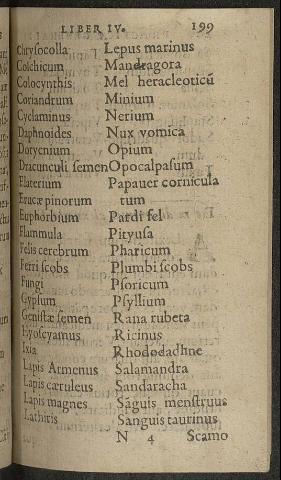 LIBER IV. 199
Chrysocolla
Colchicum
Colocynthis
Coriandrum
Cyclaminus
Daphnoides
Dorycnium
Dracunculi semen
Elaterium
Erucæ pinorum
Euphorbium
Flammula
Felis cerebrum
Ferri scobs
Fungi
Gypsum
Genistæ semen
Hyoscyamus
Ixia
Lapis Armenus
Lapis cæruleus
Lapis magnes
Lathiris
Lepus marinus
Mandragora
Mel heracleoticū
Minium
Nerium
Nux vomica
Opium
Opocalpasum
Papauer cornicula
tum
Pardi fel
Pityusa
Pharicum
Plumbi scobs
Psoricum
Psyllium
Rana rubeta
Ricinus
Rhododaphne
Salamandra
Sandaracha
Sāguis menstruus
Sanguis taurinus
N 4 Scamo